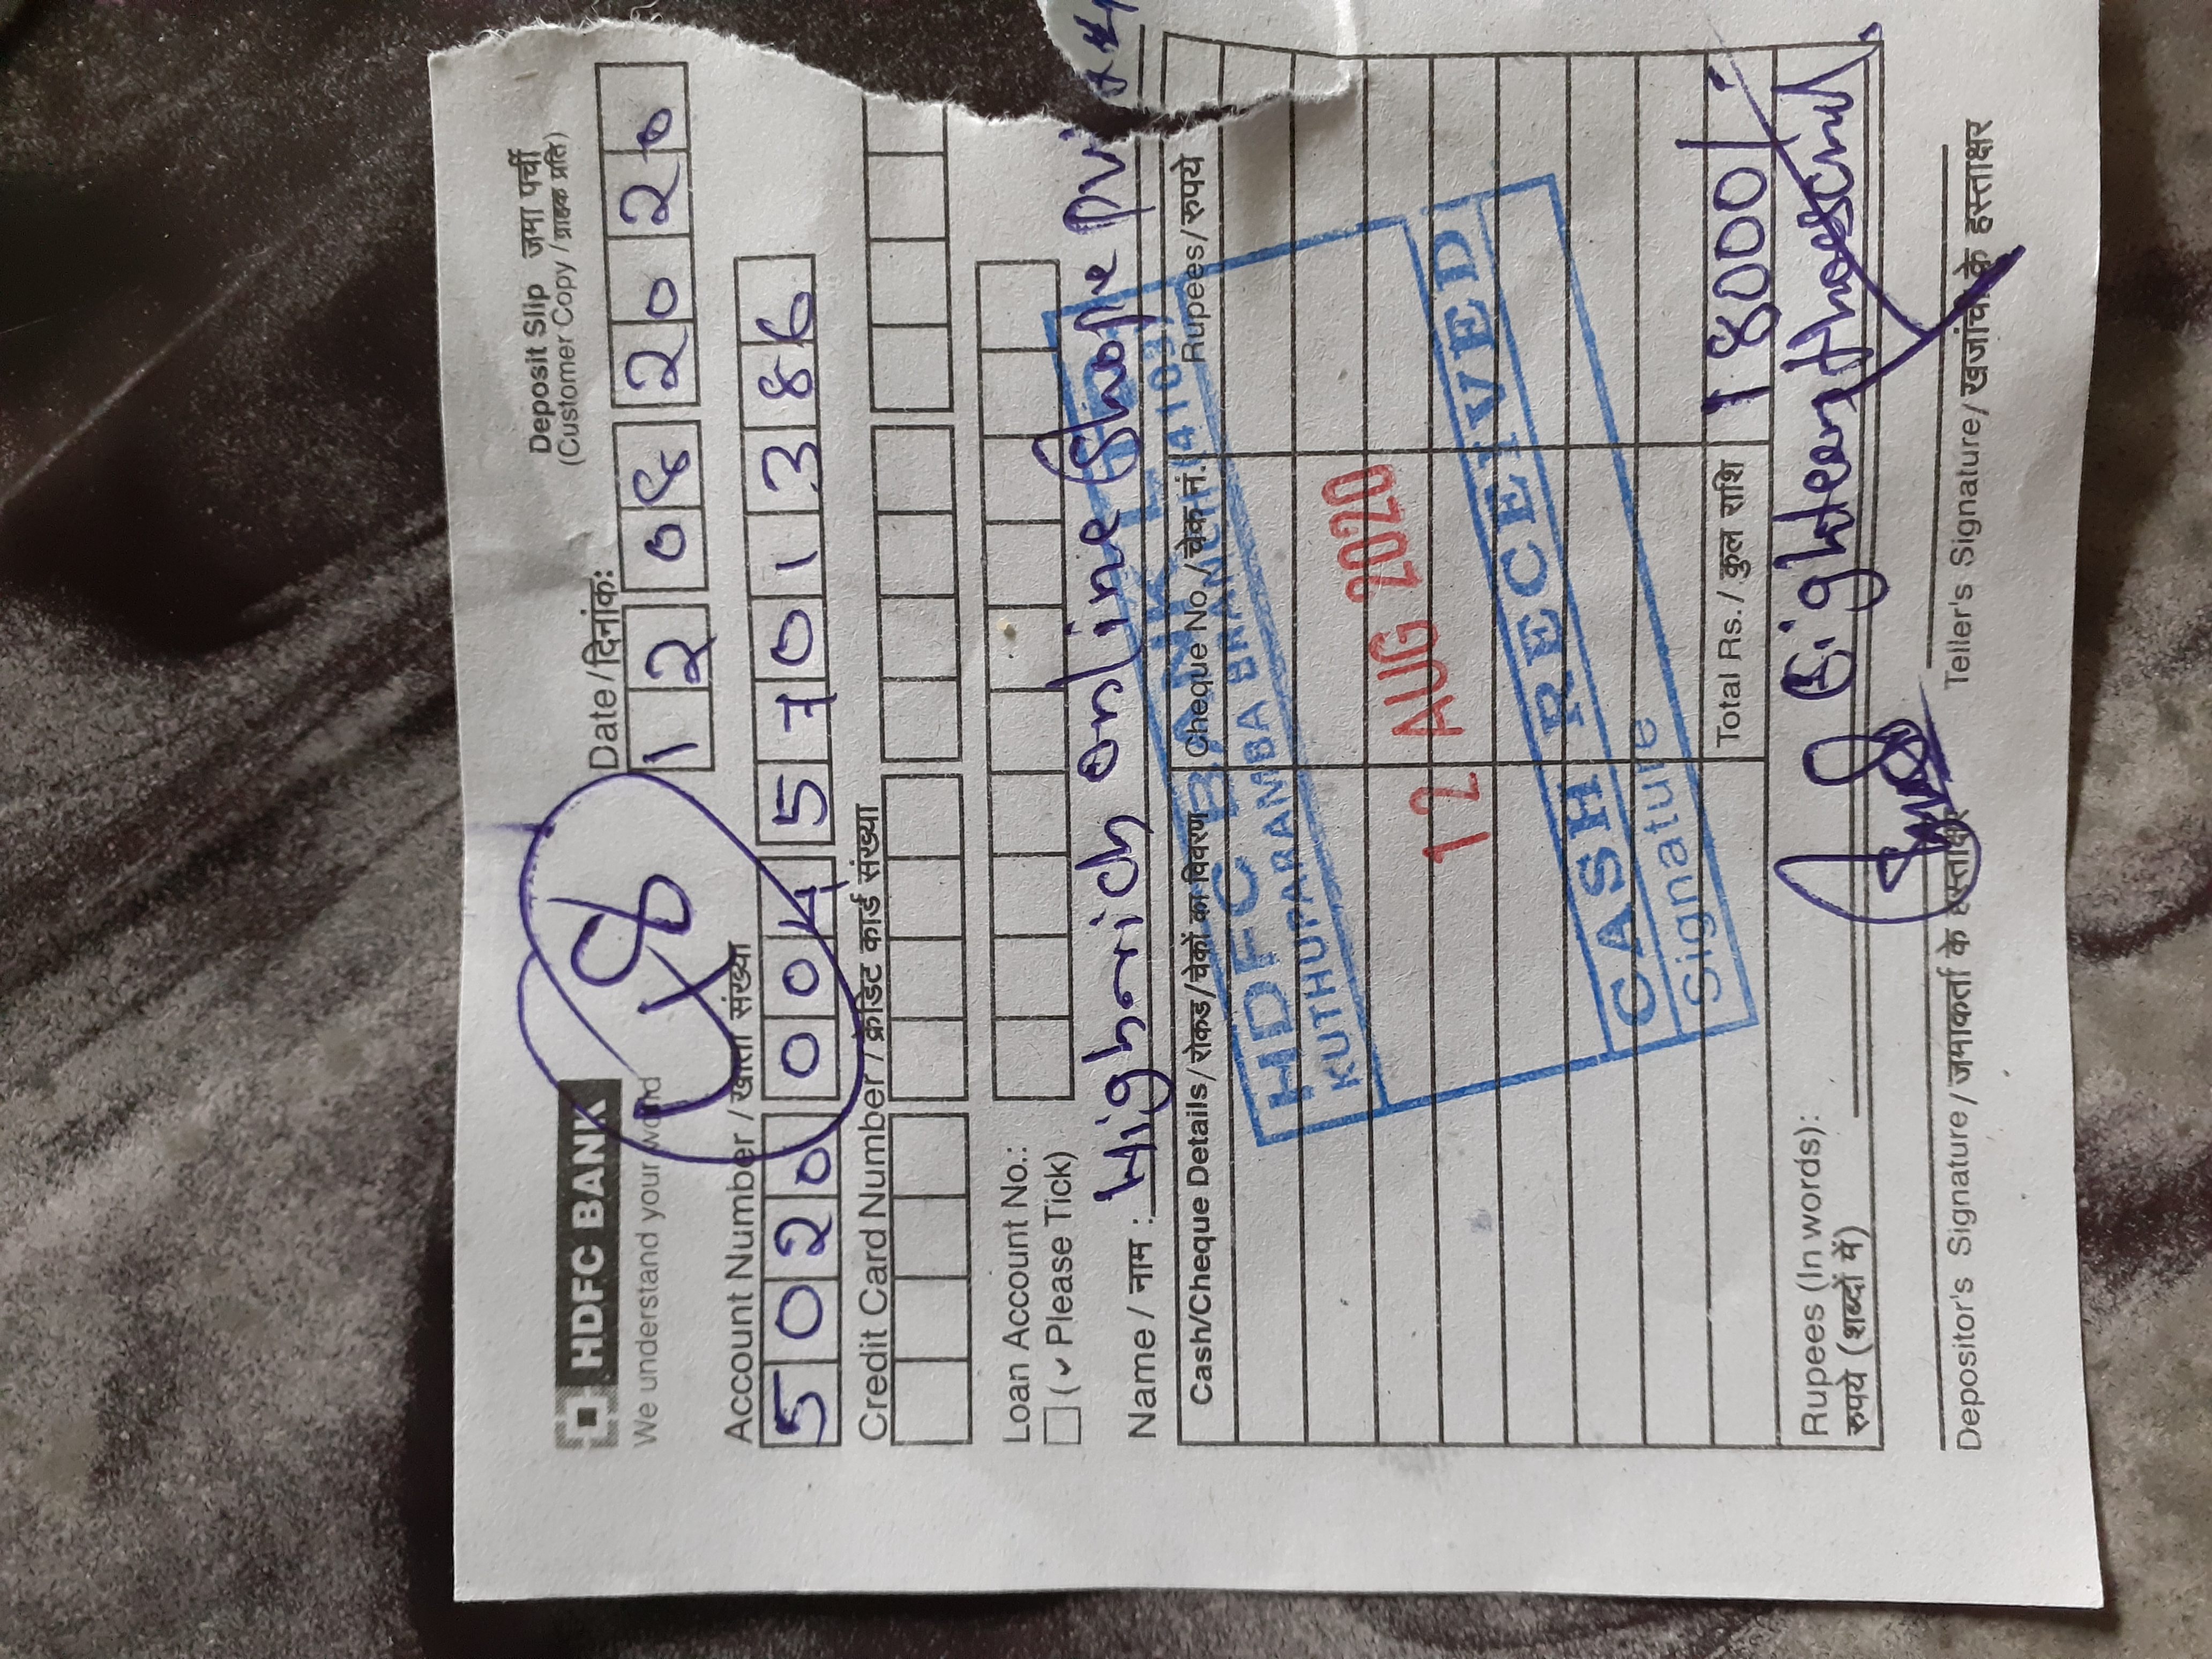 HDFC BANK
We understand your world
Deposit Slip जमा पर्ची
(Customer Copy / ग्राहक प्रति)
Date / दिनांक:
12 08 2020
18
Account Number / खाता संख्या
50200045701386
Credit Card Number / क्रेडिट कार्ड संख्या
Loan Account No.:
(✓ Please Tick)
Name / नाम : Highrich online Shope Pvt
Cash/Cheque Details / रोकड/चेकों का विवरण Cheque No./ चेक नं. Rupees/रुपये
HDFC BANK LTD
KUTHUPARAMBA BRANCH (4103)
12 AUG 2020
CASH RECEIVED
Signature
Total Rs. / कुल राशि 18000/-
Rupees (In words): Eighteen thousand
रुपये (शब्दों में)
Depositor's Signature / जमाकर्ता के हस्ताक्षर Teller's Signature / खजांची के हस्ताक्षर